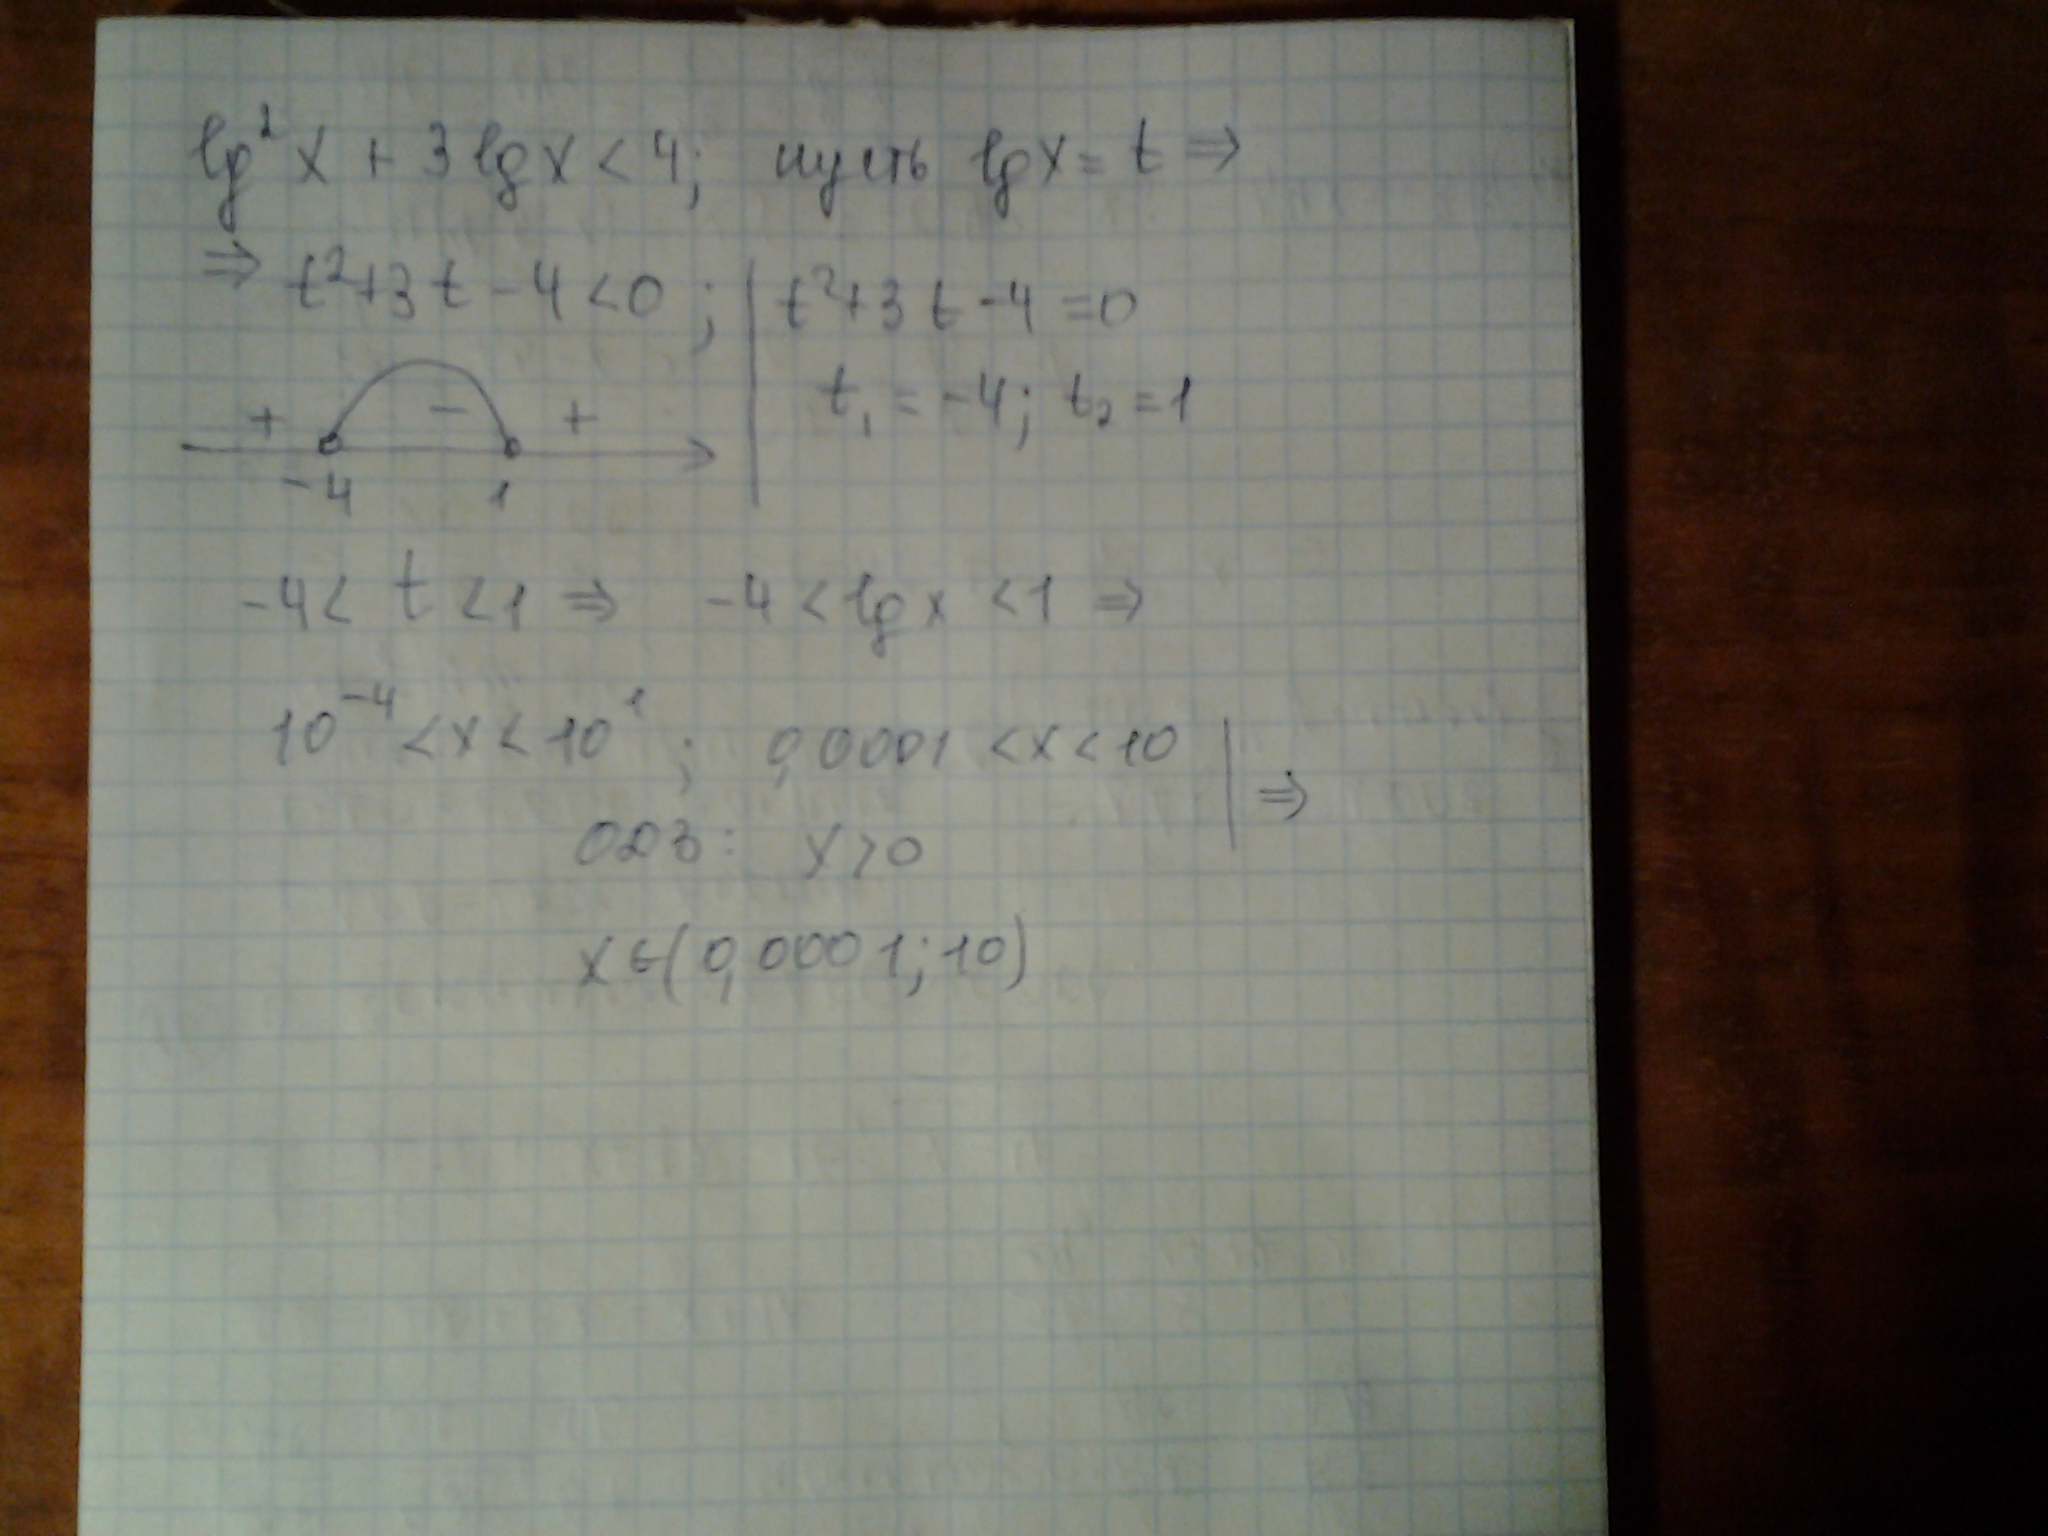 lg²x + 3lgx < 4; пусть lgx = t ⇒
⇒ t²+3t-4<0; | t²+3t-4=0
t₁ = -4; t₂=1
+ - +
-4 1
-4 < t < 1 ⇒ -4 < lgx < 1 ⇒
10⁻⁴ < x < 10¹; 0,0001 < x < 10 | ⇒
ОДЗ: x>0
x∈(0,0001;10)